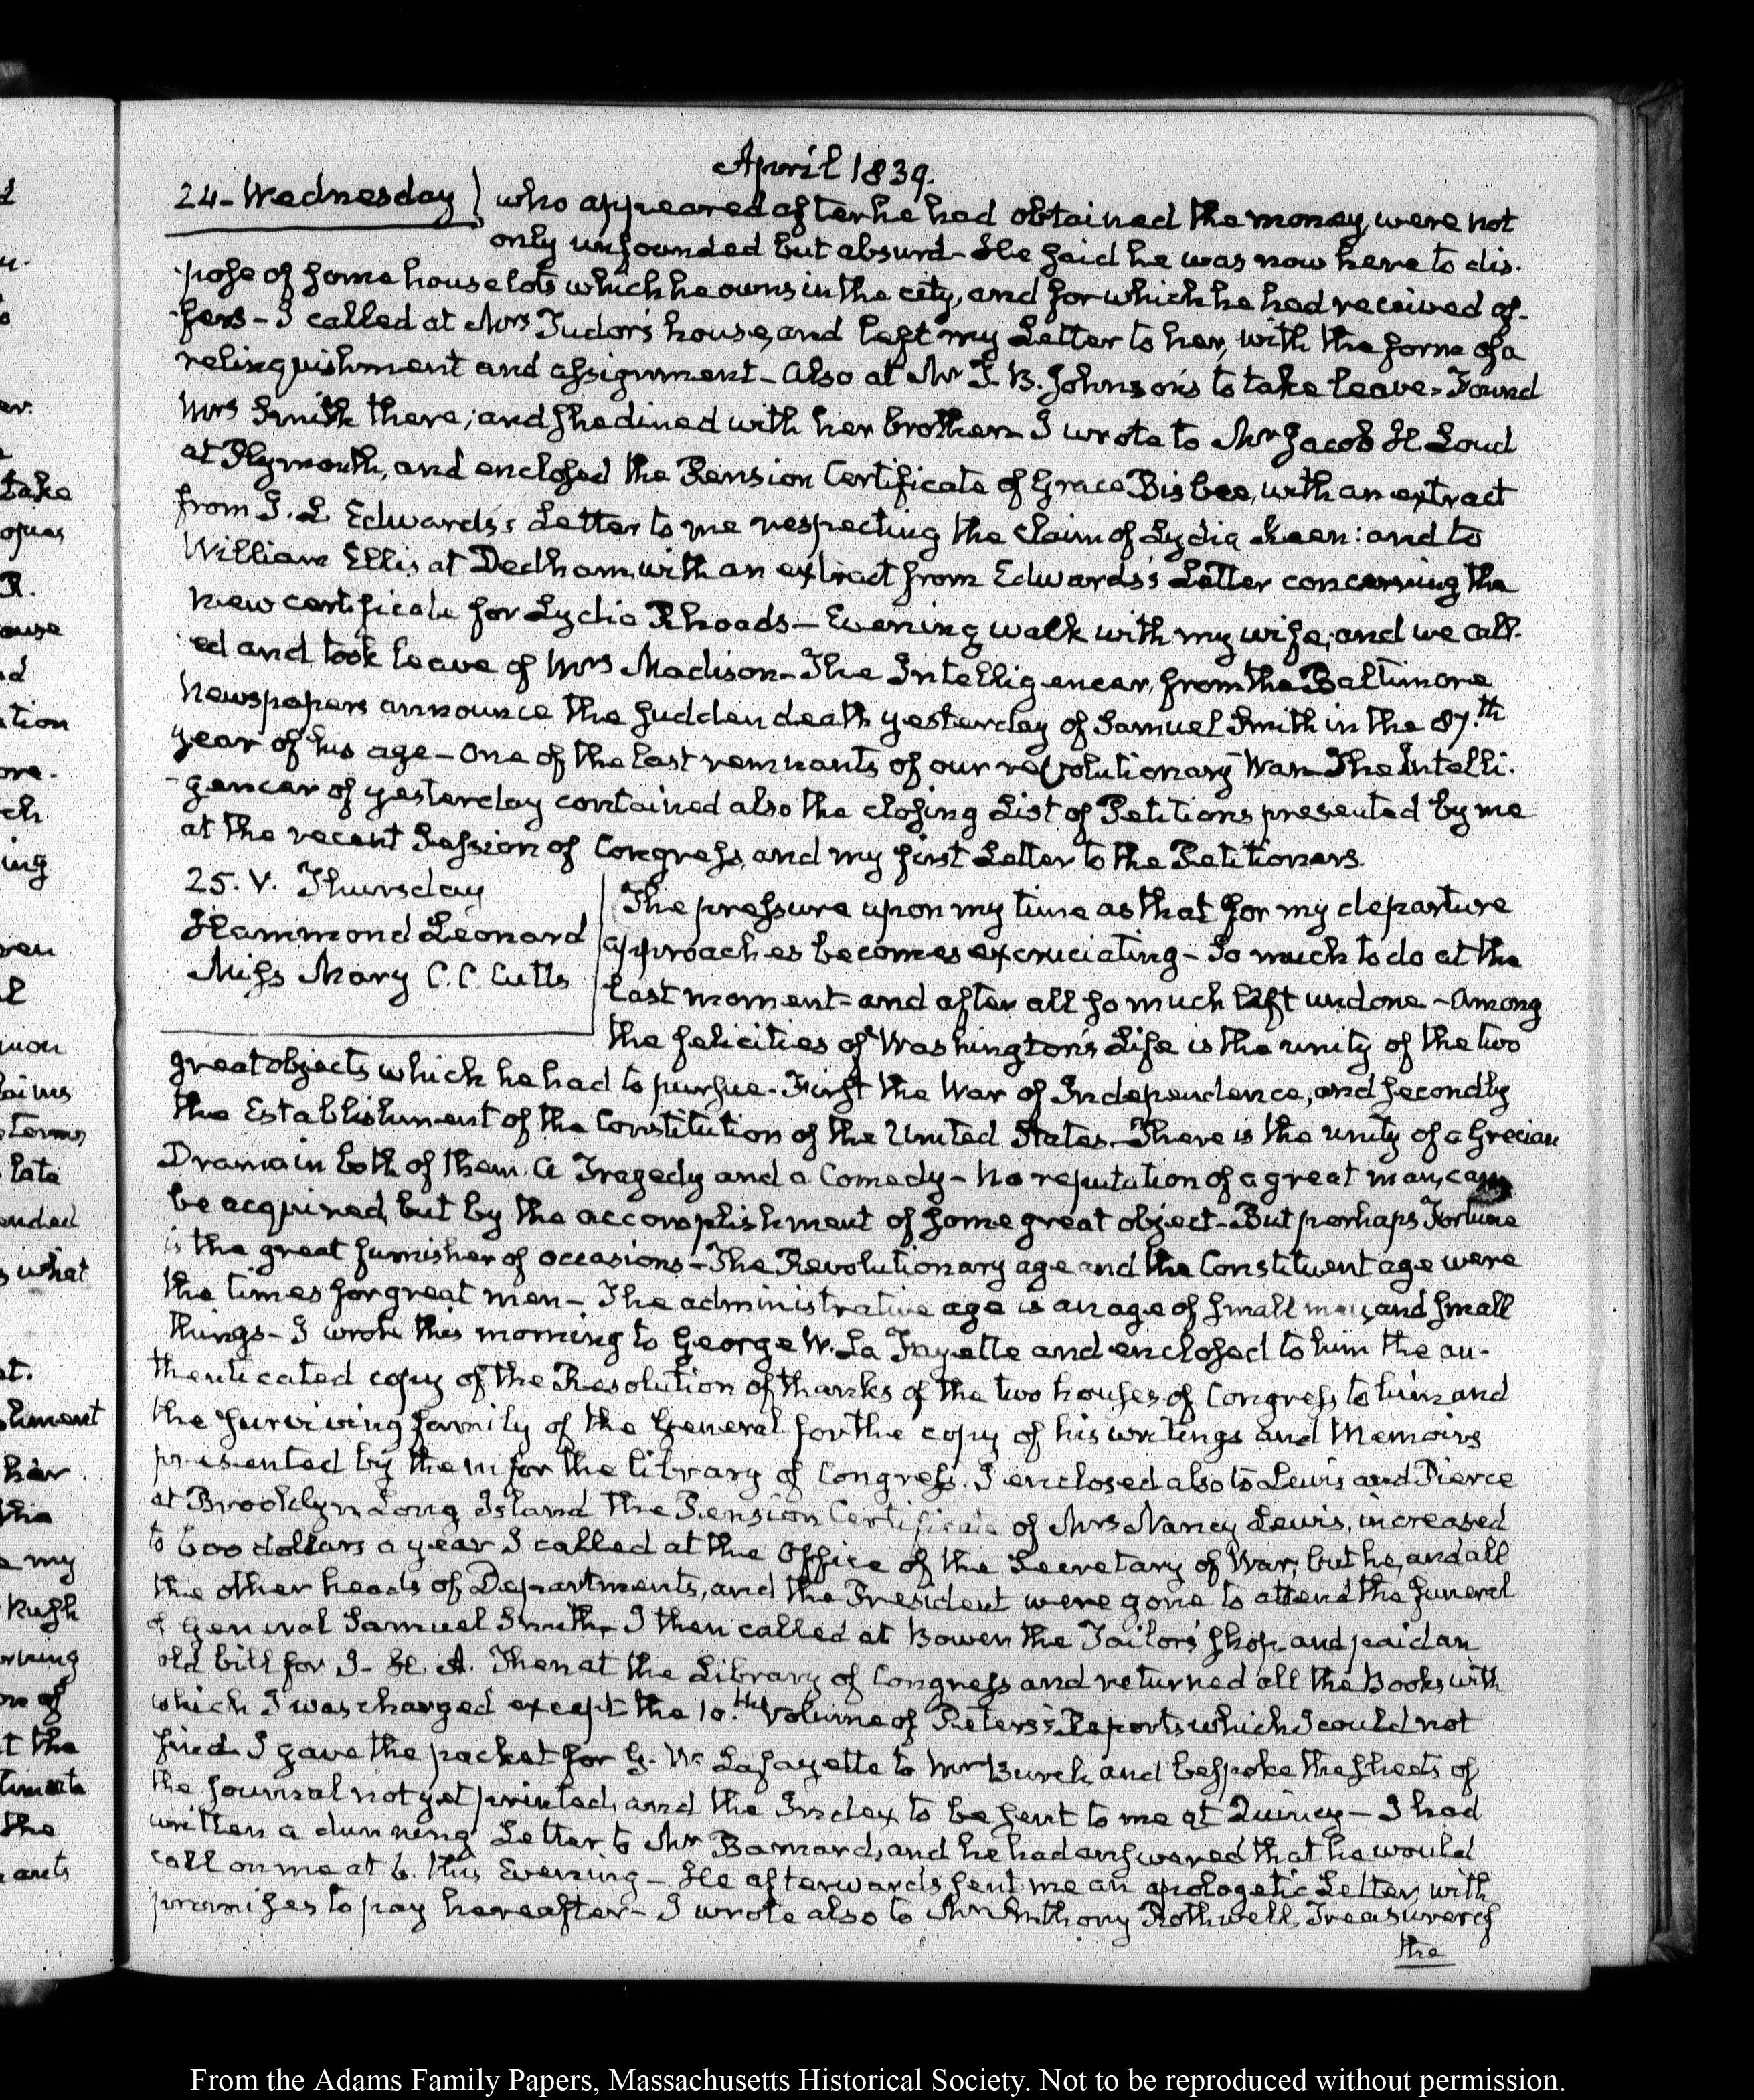 April 1839.
24 - Wednesday) who appeared after he had obtained the money, were not
only unfounded but absurd - He said he was now here to dis-
pose of some house lots which he owns in the city, and for which he had received of-
fers - I called at Mrs Tudor's house, and left my Letter to her, with the form of a
relinquishment and assignment - Also at Mr T. B. Johnson's to take leave - Found
Mrs Smith there; and she dined with her brother - I wrote to Mr Jacob H Loud
at Plymouth, and enclosed the Pension Certificate of Grace Bisbee, with an extract
from J. L. Edwards's Letter to me respecting the claim of Lydia Keen: and to
William Ellis at Dedham, with an extract from Edwards's Letter concerning the
new certificate for Lydia Rhoads - Evening walk with my wife; and we call-
ed and took leave of Mrs Madison - The Intelligencer, from the Baltimore
Newspapers announce the sudden death yesterday of Samuel Smith in the 87.th
year of his age - One of the last remnants of our revolutionary War - The Intelli-
gencer of yesterday contained also the closing List of Petitions presented by me
at the recent Session of Congress, and my first Letter to the Petitioners.
25. V. Thursday
Hammond Leonard
Miss Mary C. C. Cutts
The pressure upon my time as that for my departure
approaches becomes excruciating - So much to do at the
last moment - and after all so much left undone - Among
the felicities of Washington's Life is the unity of the two
great objects which he had to pursue - First the War of Independence, and secondly
the Establishment of the Constitution of the United States - There is the unity of a Grecian
Drama in both of them. A Tragedy and a Comedy - No reputation of a great man, can
be acquired, but by the accomplishment of some great object - But perhaps Fortune
is the great furnisher of occasions - The Revolutionary age and the Constituent age were
the times for great men - The administrative age is an age of small men, and small
things - I wrote this morning to George W. La Fayette and enclosed to him the au-
thenticated copy of the Resolution of thanks of the two houses of Congress to him and
the surviving family of the General for the copy of his writings and Memoirs
presented by them for the library of Congress. I enclosed also to Lewis and Pierce
at Brooklyn Long Island the Pension Certificate of Mrs Nancy Lewis, increased
to 600 dollars a year I called at the Office of the Secretary of War; but he, and all
the other heads of Departments, and the President were gone to attend the funeral
of General Samuel Smith - I then called at Bowen the Tailor's shop and paid an
old bill for I. H. A. Then at the Library of Congress and returned all the Books with
which I was charged except the 10.th Volume of Peters's Reports which I could not
find. I gave the packet for G. W. Lafayette to Mr Burch, and bespoke the sheets of
the Journal not yet printed, and the Index to be sent to me at Quincy - I had
written a dunning Letter to Mr Barnard, and he had answered that he would
call on me at 6. this Evening - He afterwards sent me an apologetic Letter, with
promises to pay hereafter - I wrote also to Mr Anthony Rothwell, Treasurer of
the
From the Adams Family Papers, Massachusetts Historical Society. Not to be reproduced without permission.